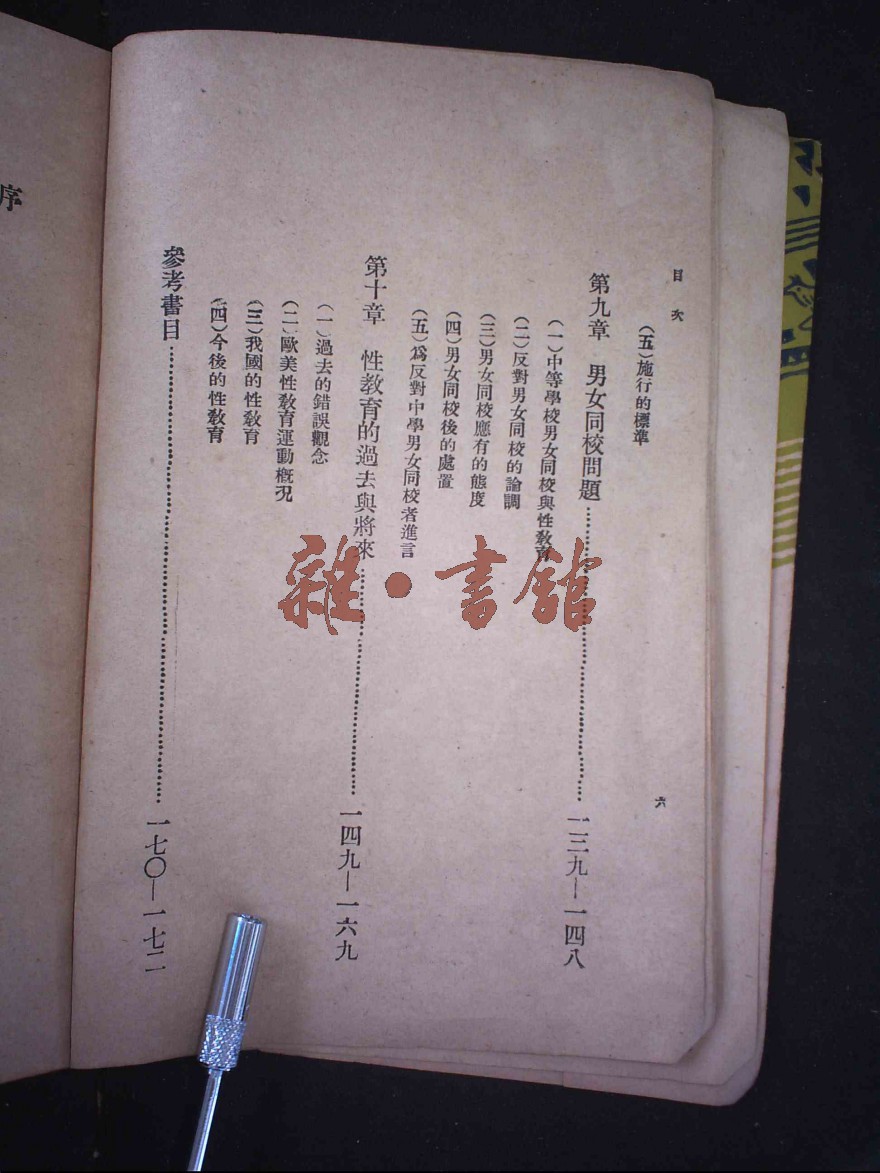 目次
六
（五）施行的標準
第九章　男女同校問題……一三九—一四八
（一）中等學校男女同校與性教育
（二）反對男女同校的論調
（三）男女同校應有的態度
（四）男女同校後的處置
（五）爲反對中學男女同校者進言
第十章　性教育的過去與將來……一四九—一六九
（一）過去的錯誤觀念
（二）歐美性教育運動概況
（三）我國的性教育
（四）今後的性教育
參考書目……一七〇—一七二
序
雜·書館